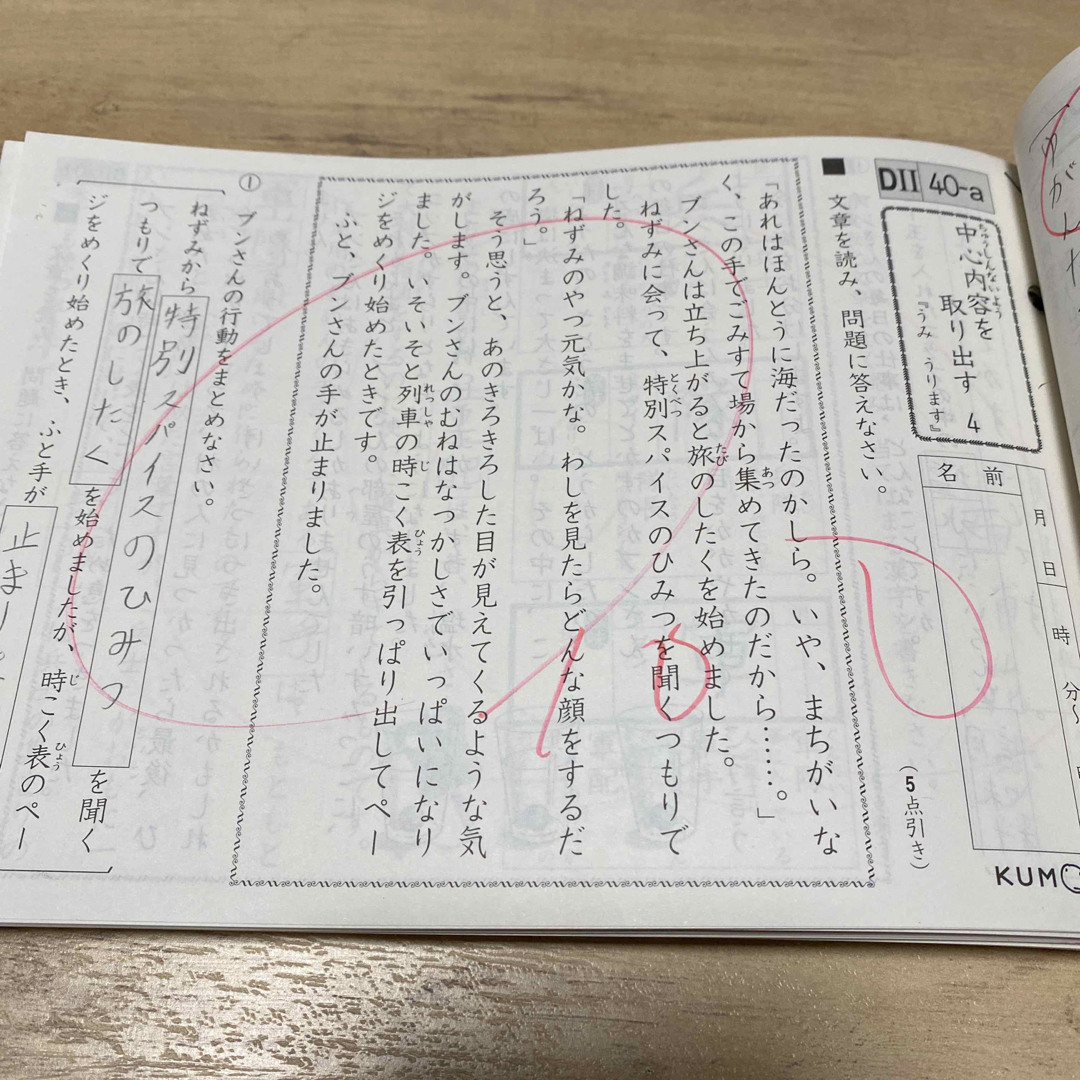 DII 40-a
中心内容を
ちゅうしんないよう
取り出す 4
『うみ うります』
月 日
時 分〜
名前
KUM
(5点引き)
■ 文章を読み、問題に答えなさい。
「あれはほんとうに海だったのかしら。いや、まちがいな
く、この手でごみすて場から集めてきたのだから……。」
あつ
ブンさんは立ち上がると旅のしたくを始めました。
たび
ねずみに会って、特別スパイスのひみつを聞くつもりで
とくべつ
した。
「ねずみのやつ元気かな。わしを見たらどんな顔をするだ
ろう。」
そう思うと、あのきろきろした目が見えてくるような気
がします。ブンさんのむねはなつかしさでいっぱいになり
ました。いそいそと列車の時こく表を引っぱり出してペー
れっしゃ じ ひょう
ジをめくり始めたときです。
ふと、ブンさんの手が止まりました。
① ブンさんの行動をまとめなさい。
ねずみから特別スパイスのひみつを聞く
つもりで旅のしたくを始めましたが、時こく表のペー
じ ひょう
ジをめくり始めたとき、ふと手が止まり
100